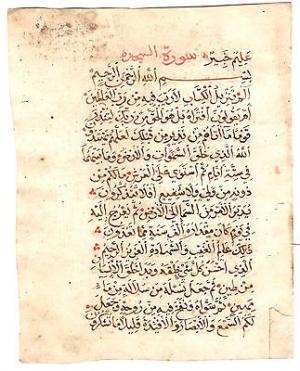 عليم خبير سورة السجدة
بسم الله الرحمن الرحيم
الم تنزيل الكتاب لا ريب فيه من رب العالمين
ام يقولون افتراه بل هو الحق من ربك لتنذر
قوما ما اتاهم من نذير من قبلك لعلهم يهتدون
الله الذي خلق السموات والارض وما بينهما
في ستة ايام ثم استوى على العرش ما لكم من
دونه من ولي ولا شفيع افلا تتذكرون
يدبر الامر من السماء الى الارض ثم يعرج اليه
في يوم كان مقداره الف سنة مما تعدون
ذلك عالم الغيب والشهادة العزيز الرحيم
الذي احسن كل شيء خلقه وبدا خلق الانسان
من طين ثم جعل نسله من سلالة من ماء
مهين ثم سواه ونفخ فيه من روحه وجعل
لكم السمع والابصار والافئدة قليلا ما تشكرون